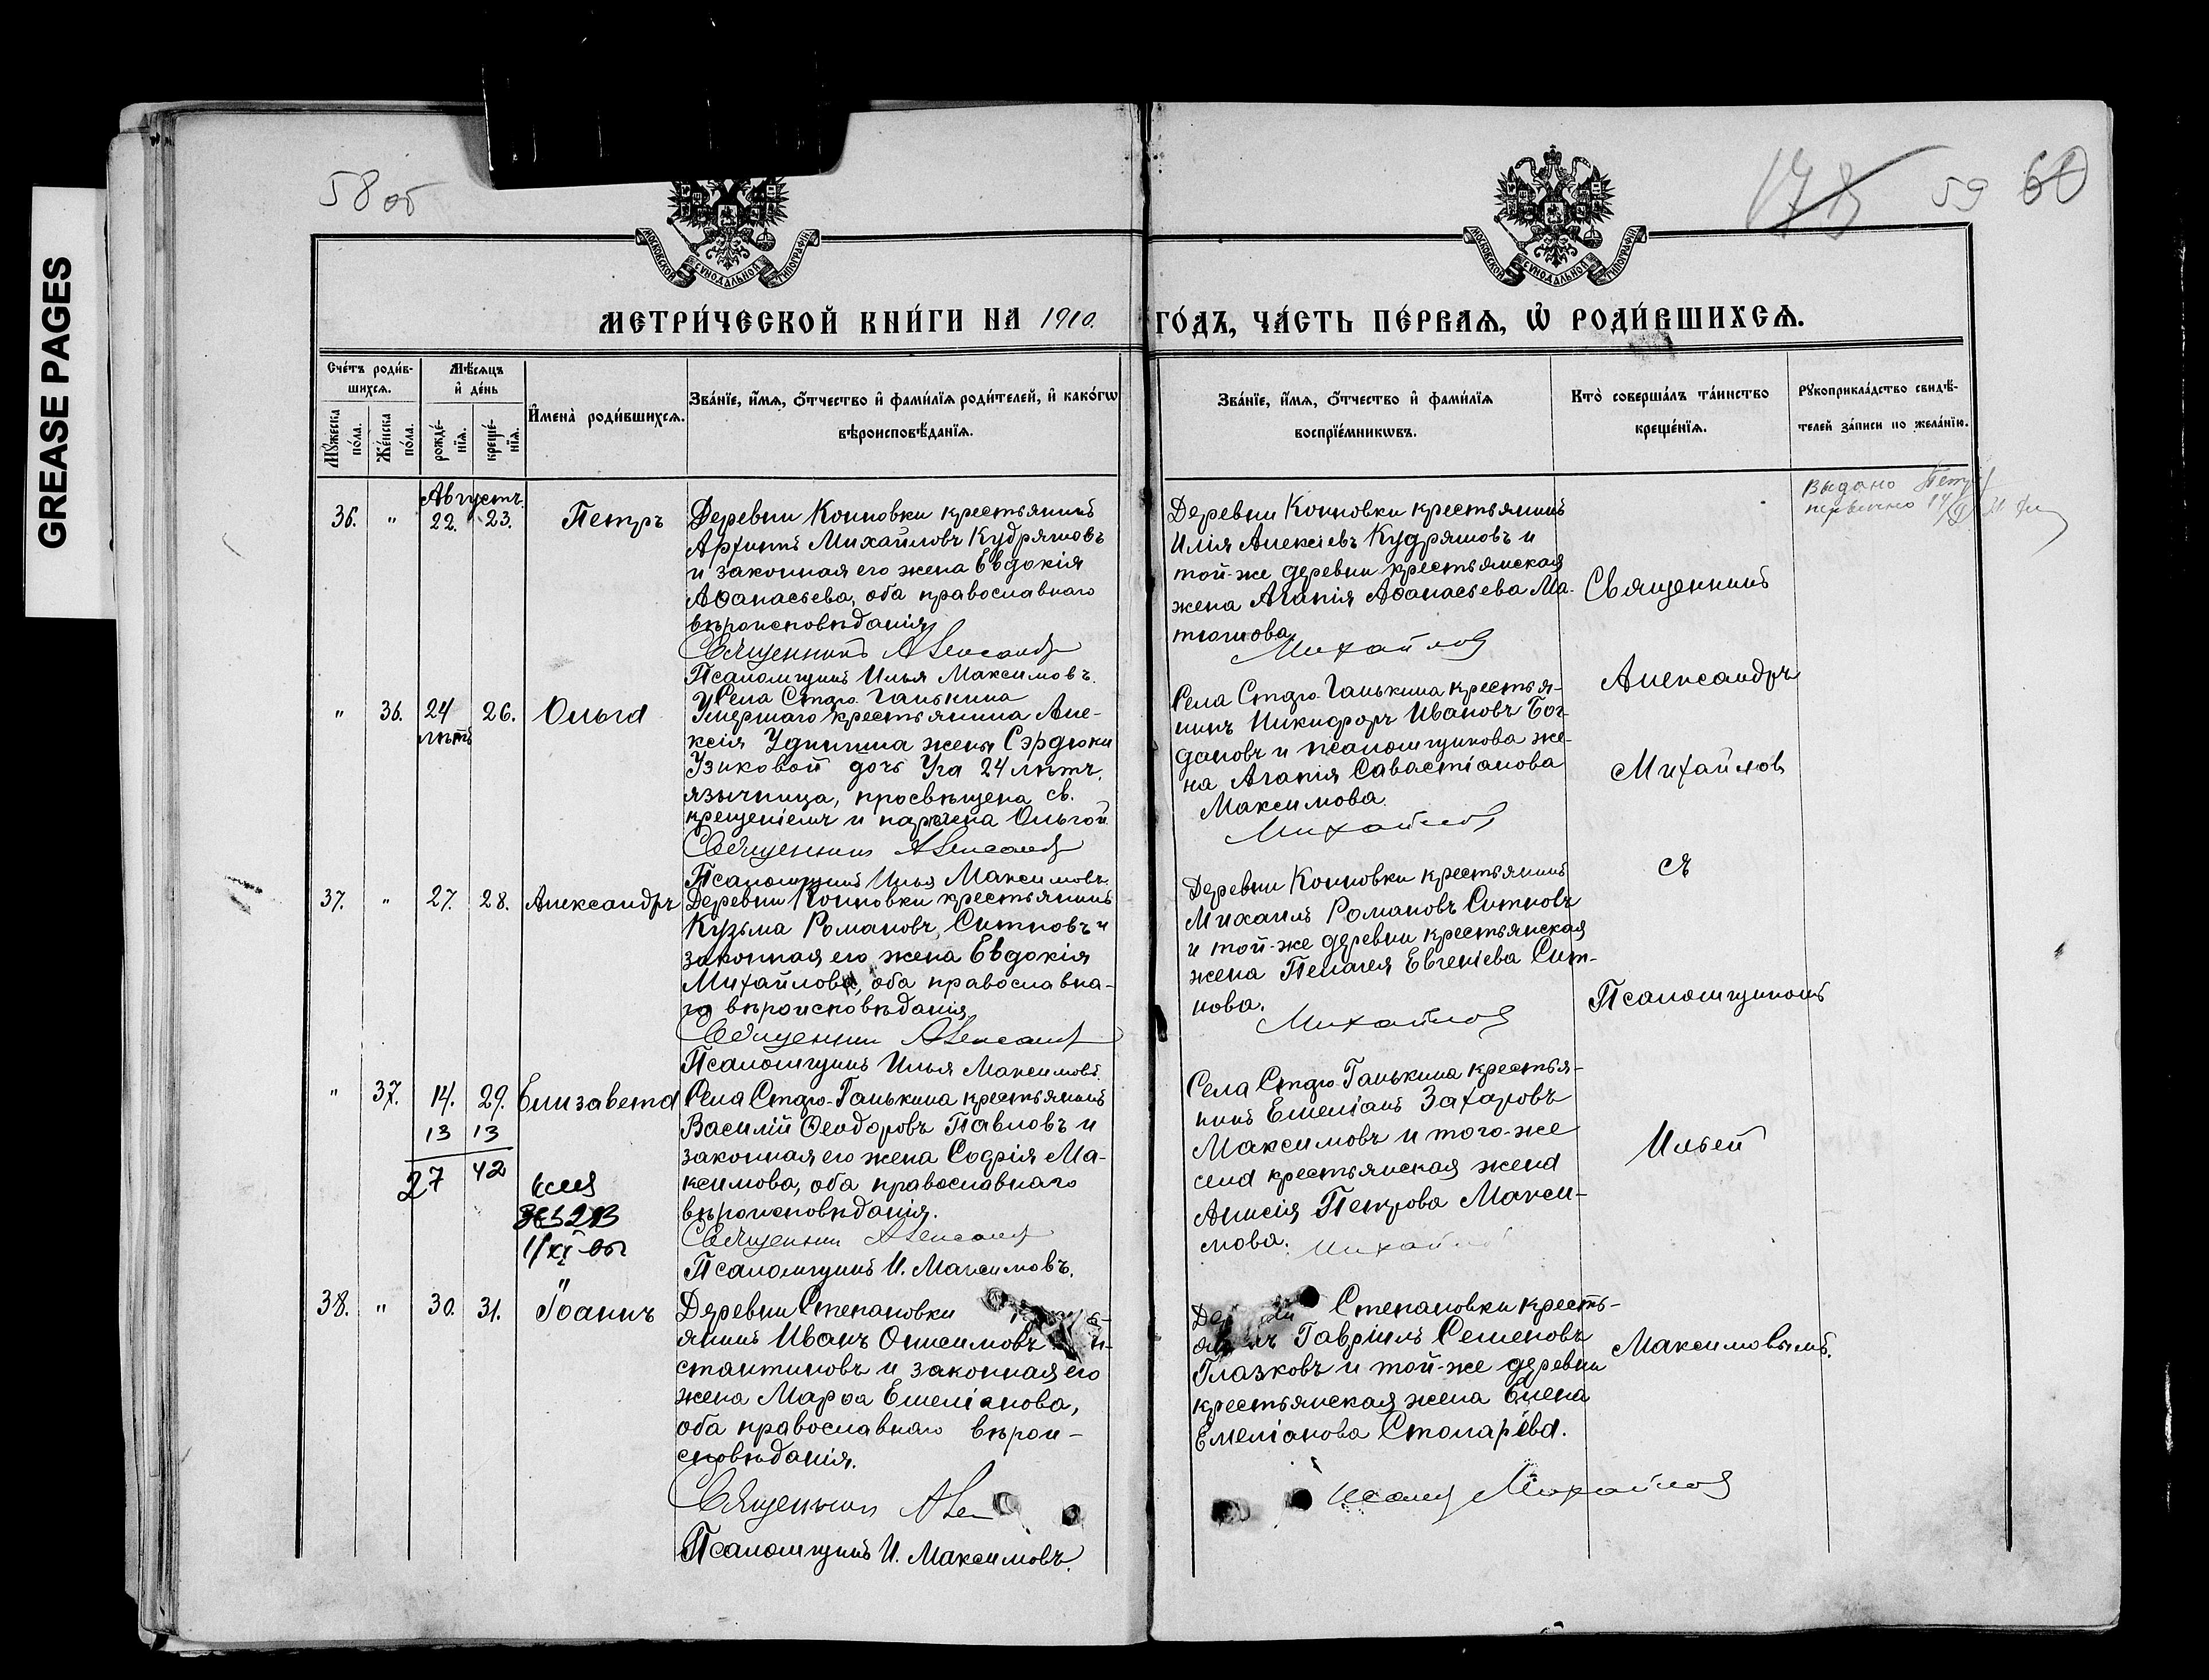 GREASE PAGES
58 об
59 60
МОСКОВСКОЙ СѴНОДАЛЬНОЙ ТИПОГРАФІИ
МОСКОВСКОЙ СѴНОДАЛЬНОЙ ТИПОГРАФІИ
МЕТРИ́ЧЕСКОЙ КНИ́ГИ НА 1910. ГО́ДЪ, ЧА́СТЬ ПЕ́РВАѦ, Ѡ҆ РОДИ́ВШИХСѦ.
Сче́тъ роди́в-
шихсѧ.
Мꙋ́жеска по́ла.
Же́нска по́ла.
Мѣ́сѧцъ
и҆ де́нь
рожде́-
нїѧ.
креще́-
нїѧ.
И҆мена̀ роди́вшихсѧ.
Зва́нїе, и҆́мѧ, ѻ҆́тчество и҆ фами́лїѧ роди́телей, и҆ како́гѡ
вѣроисповѣ́данїѧ.
Зва́нїе, и҆́мѧ, ѻ҆́тчество и҆ фами́лїѧ
воспрїе́мникѡвъ.
Кто̀ соверша́лъ та́инство
креще́нїѧ.
Рꙋкоприкла́дство свидѣ́-
телей за́писи по жела́нїю.
Августъ
36. " 22. 23. Петръ
Деревни Конновки крестьянинъ
Архипъ Михайловъ Кудряшовъ
и законная его жена Евдокія
Аѳанасьева, оба православнаго
вѣроисповѣданія
Священникъ Александр
Псаломщикъ Илья Максимовъ.
Деревни Конновки крестьянинъ
Илія Алексіевъ Кудряшовъ и
той-же деревни крестьянская
жена Агапія Аѳанасьева Ма-
тюшова
Михайлов
Выдано
" 36. 24 26. Ольга
лѣтъ
Села Старо-Ганькина
Умершаго крестьянина Але-
ксія жены Сэрдюки
Узиковой дочь Уга 24 лѣтъ,
язычница, просвѣщена св.
крещеніемъ и наречена Ольгой
Священник Александр
Псаломщикъ Илья Максимовъ.
Села Старо-Ганькина крестья-
нинъ Никифоръ Ивановъ Бог-
дановъ и псаломщикова же-
на Агапія Савастіанова
Максимова.
Михайлов
37. " 27. 28. Александръ
Деревни Конновки крестьянинъ
Кузьма Романовъ Ситновъ и
законная его жена Евдокія
Михайлова, оба православна-
го вѣроисповѣданія
Священник Александр
Псаломщикъ Илья Максимовъ.
Деревни Конновки крестьянинъ
Михаилъ Романовъ Ситновъ
и той-же деревни крестьянская
жена Пелагея Евгеніева Сит-
нова.
Михайлов
" 37. 14. 29. Елизавета
13 13
27 42
Села Старо-Ганькина крестьянинъ
Василій Ѳеодоровъ Павловъ и
законная его жена Софія Ма-
ксимова, оба православнаго
вѣроисповѣданія.
Священник Александр
Псаломщикъ И. Максимовъ.
Села Старо-Ганькина крестья-
нинъ Емеліанъ Захаровъ
Максимовъ и того-же
села крестьянская жена
Анисія Петрова Макси-
мова.
Михайлов
38. " 30. 31. Іоаннъ
Деревни Степановки
янинъ Иванъ Онисимовъ
стантиновъ и законная его
жена Марѳа Емеліанова,
оба православнаго вѣрои-
сповѣданія.
Священник
Псаломщикъ И. Максимовъ.
Степановки кресть-
Гавріилъ Семеновъ
Глазковъ и той-же деревни
крестьянская жена Елена
Емеліанова Столярева.
Михайлов
Священникъ
Александръ
Михайловъ
съ
Псаломщикомъ
Ильей
Максимовымъ.